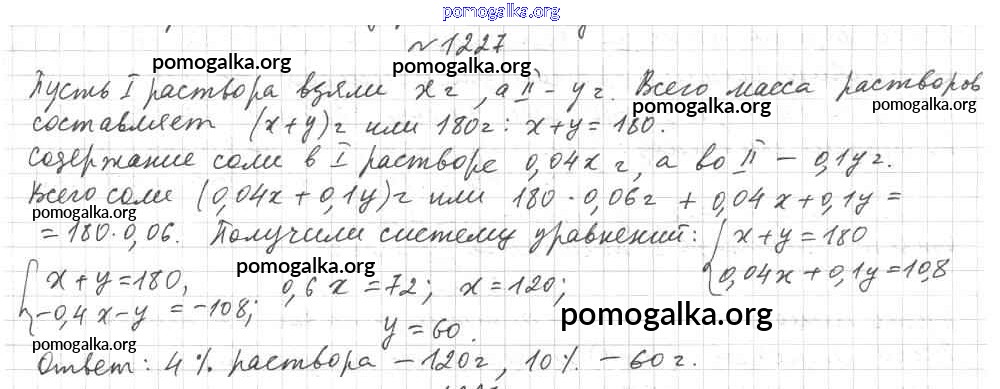 pomogalka.org
№ 1227
pomogalka.org pomogalka.org
Пусть I раствора взяли x г, а II - y г. Всего масса растворов
pomogalka.org pomogalka.org
составляет (x+y) г или 180 г: x+y=180.
pomogalka.org
Содержание соли в I растворе 0,04x г, а во II - 0,1y г.
pomogalka.org
Всего соли (0,04x+0,1y) г или 180·0,06 г + 0,04x+0,1y=
pomogalka.org
=180·0,06. Получили систему уравнений: { x+y=180
0,04x+0,1y=10,8
pomogalka.org
{ x+y=180, 0,6x=72; x=120;
-0,4x-y=-108; y=60.
pomogalka.org
pomogalka.org
Ответ: 4% раствора - 120 г, 10% - 60 г.